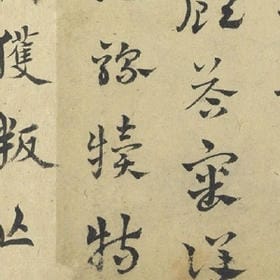 顧答審詳
騾犢特
獲叛亡